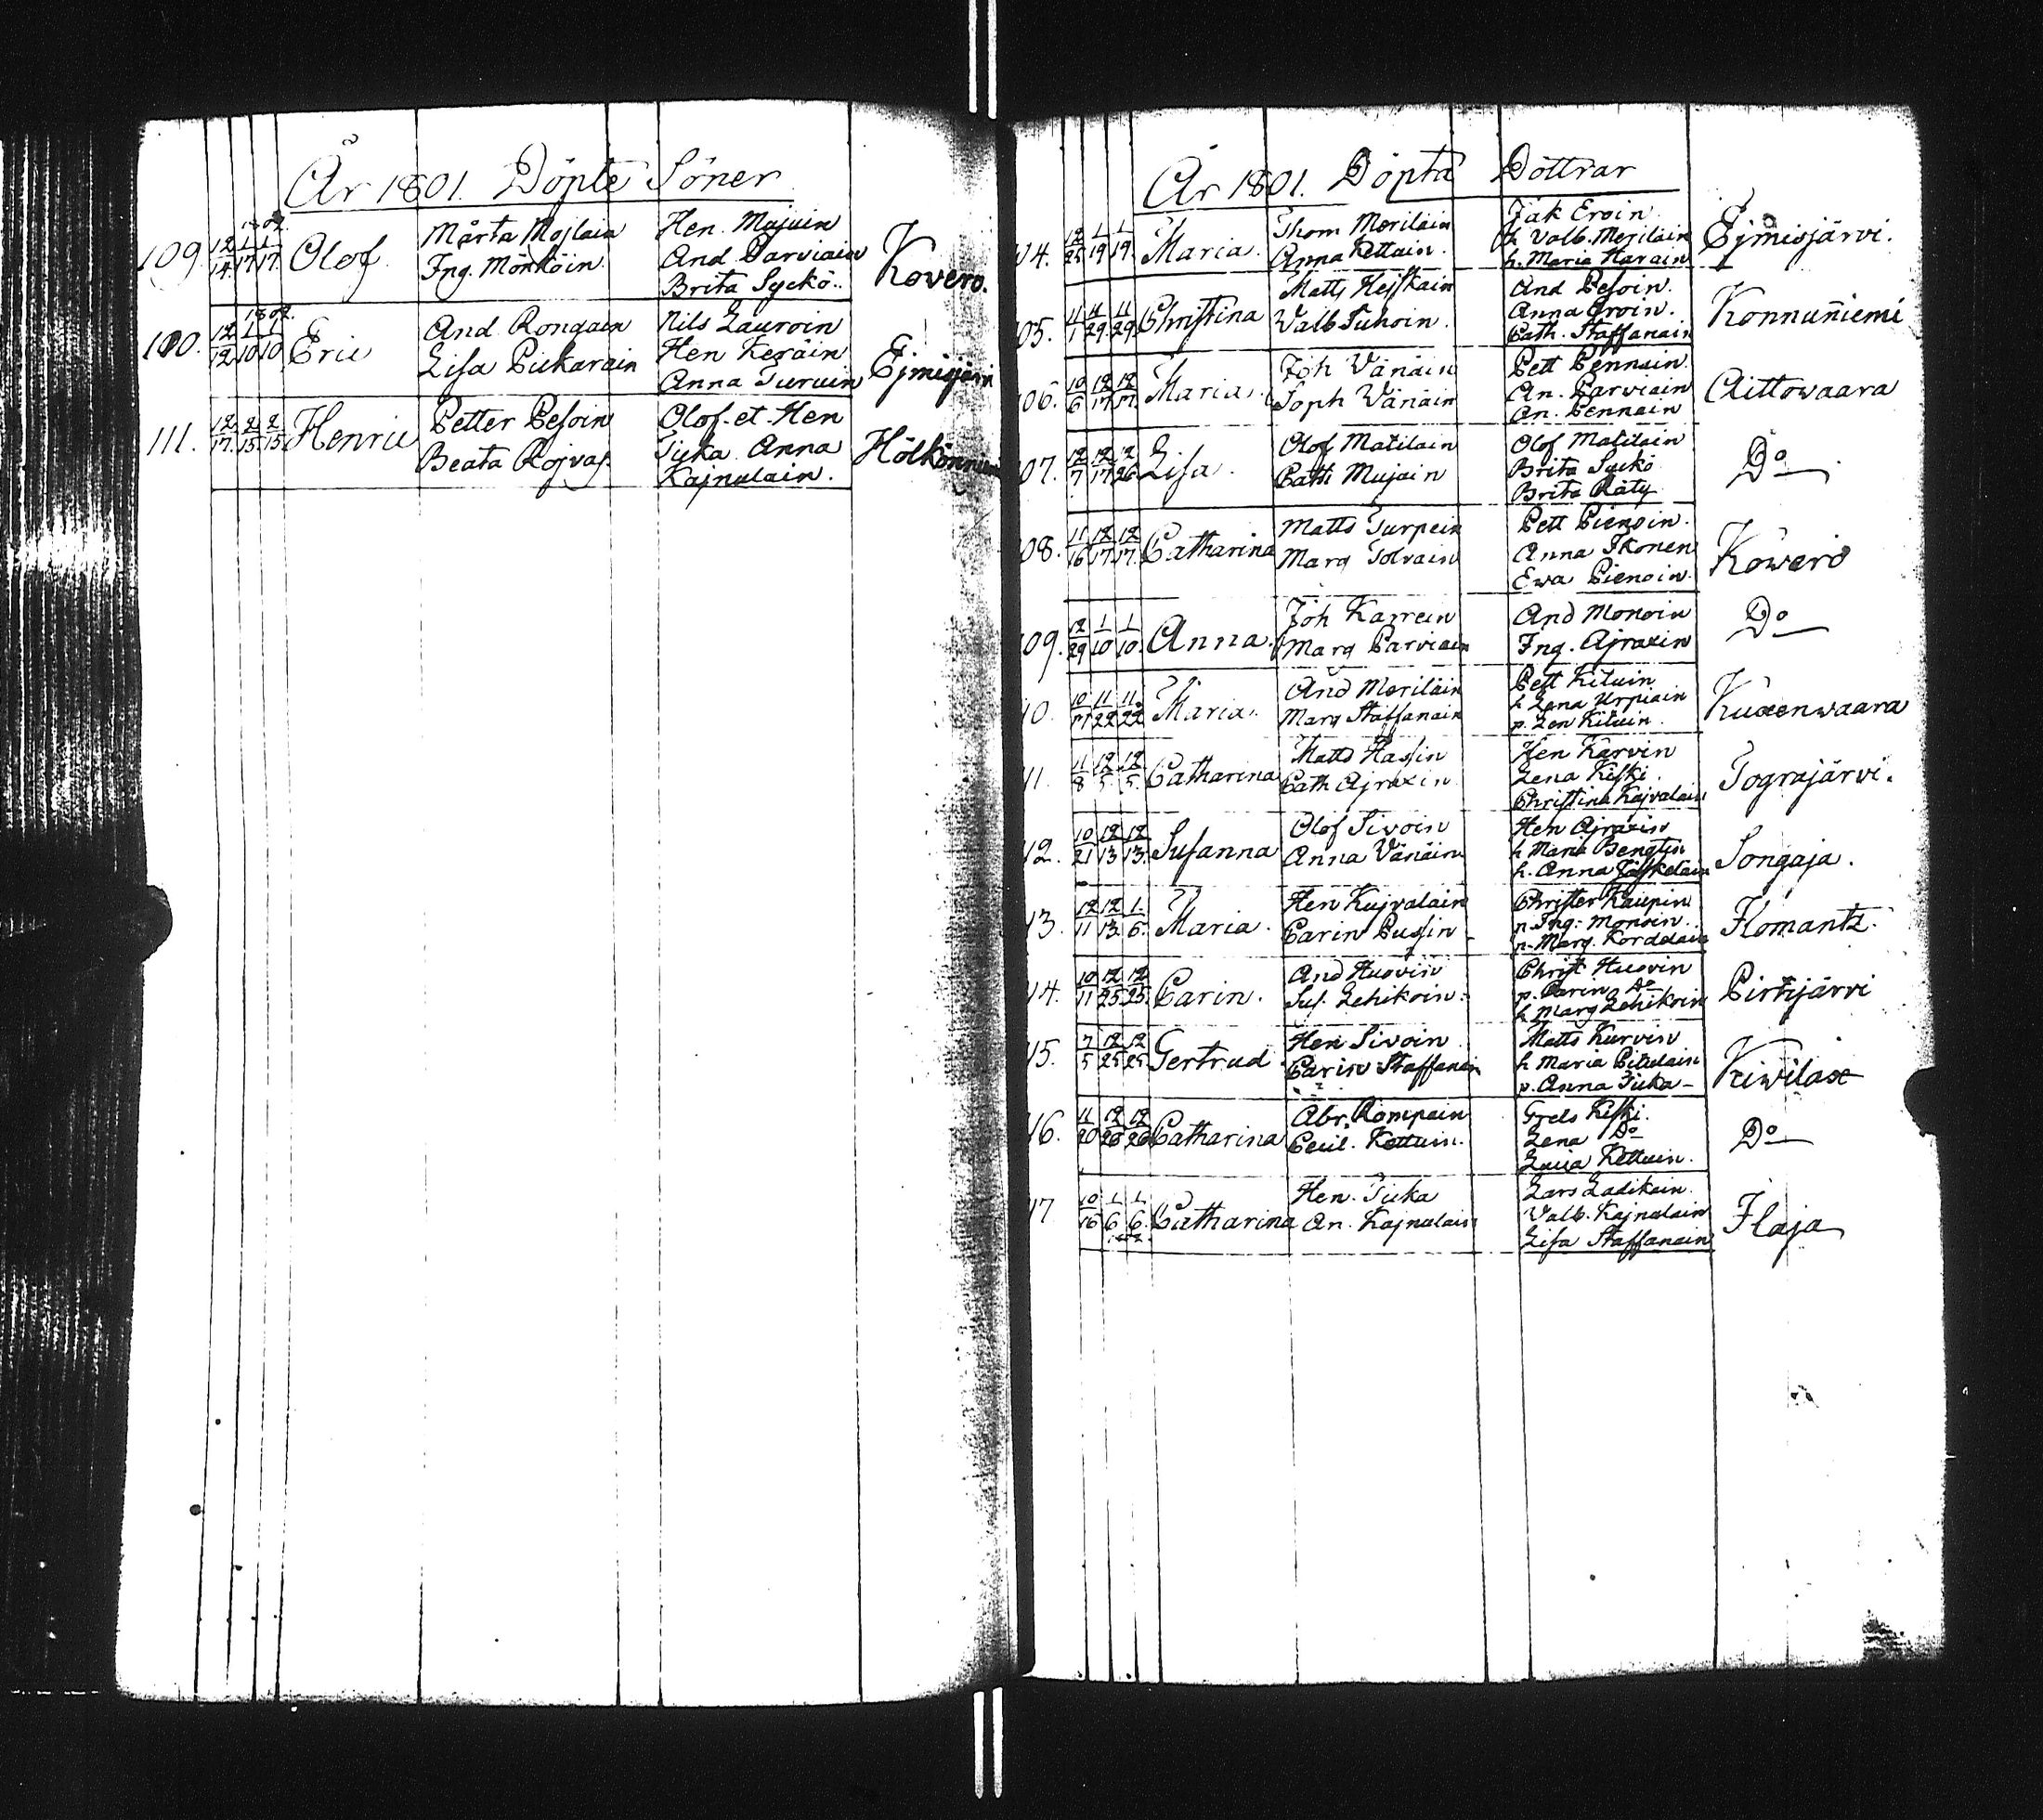 År 1801. Döpte Söner
1802.
109. 12/14 1/17 1/17 Olof Mårta Mojlain Hen. Mujuin Kovero.
Ing. Mönköin And Parviain
Brita Syckö
1802.
110. 12/12 1/10 1/10 Eric And Rongain Nils Lauroin Ejmisjärvi
Lisa Pickarain Hen Keräin
Anna Turuin
111. 12/17. 2/15. 2/15 Henric Petter Pesoin Olof et Hen Hölkönniemi
Beata Rojvas Ticka Anna
Kajnulain.
År 1801. Döpta Döttrar
04. 12/25 1/19 1/19 Maria. Thom Meriläin Jak Eroin Ejmisjärvi.
Anna Kettuin. h Valb. Meriläin
h. Maria Harain
05. 11/1 11/29 11/29 Christina Matts Heiskain And Pesoin. Konnuniemi
Walb Tuhoin. Anna Eroin.
Cath. Staffanain
06. 10/6 12/17 12/17. Maria. Joh Vänäin Pett Pennain Aittowaara
Soph Vänäin An. Parviain
An. Pennain
07. 12/7 12/17 12/26 Lisa. Olof Matilain Olof Matilain Do
Cath Mujain Brita Syckö
Brita Räty
08. 11/16 12/17 12/17. Catharina Matts Turpein Pett Pienoin. Kowero
Marg Tolvain Anna Ikonen
Ewa Pienoin.
09. 12/29 1/10 1/10. Anna. Joh Karrein And Monoin Do
Marg Parviain Ing. Ajraxin
10. 11/22 11/22 Maria. And Meriläin Pett Kituin Kuxenwaara
Marg Staffanain h Lena Urpiain
p. Len Kituin.
11. 11/8 12/5. 12/5. Catharina Matts Hassin Hen Karvin Tograjärvi.
Cath Ajraxin Lena Kiski.
Christina Kajvalain
12. 10/21 12/13 12/13. Susanna Olof Sivoin Hen Ajraxin Songaja.
Anna Vänäin h Maria Bengtin
h. Anna Jäskeläin
13. 12/11 12/13 1/6. Maria. Hen Kujvalain Christer Kaupin Ilomantz.
Carin Pussin p. Ing. Monoin.
p. Marg. Kordelain
14. 10/11 12/25 12/25. Carin. And Huovin Christ Huovin Pirtijärvi
Sus. Lehikoin. p. Carin Do
h Marg Lehikoin
15. 7/5 12/25 12/25 Gertrud Hen Sivoin Matts Kurvin Kiwilax
Carin Staffanain h Maria Pitulain
p. Anna Ticka
16. 11/20 12/26 12/26 Catharina Abr. Rompain Grels Kiski. Do
Cecil. Kettuin. Lena Do
Kettuin.
17 10/16 1/6 1/6. Catharina Hen. Ticka Lars Ladikain Ilaja
An. Kajnulain Valb. Kajnulain
Lisa Staffanain